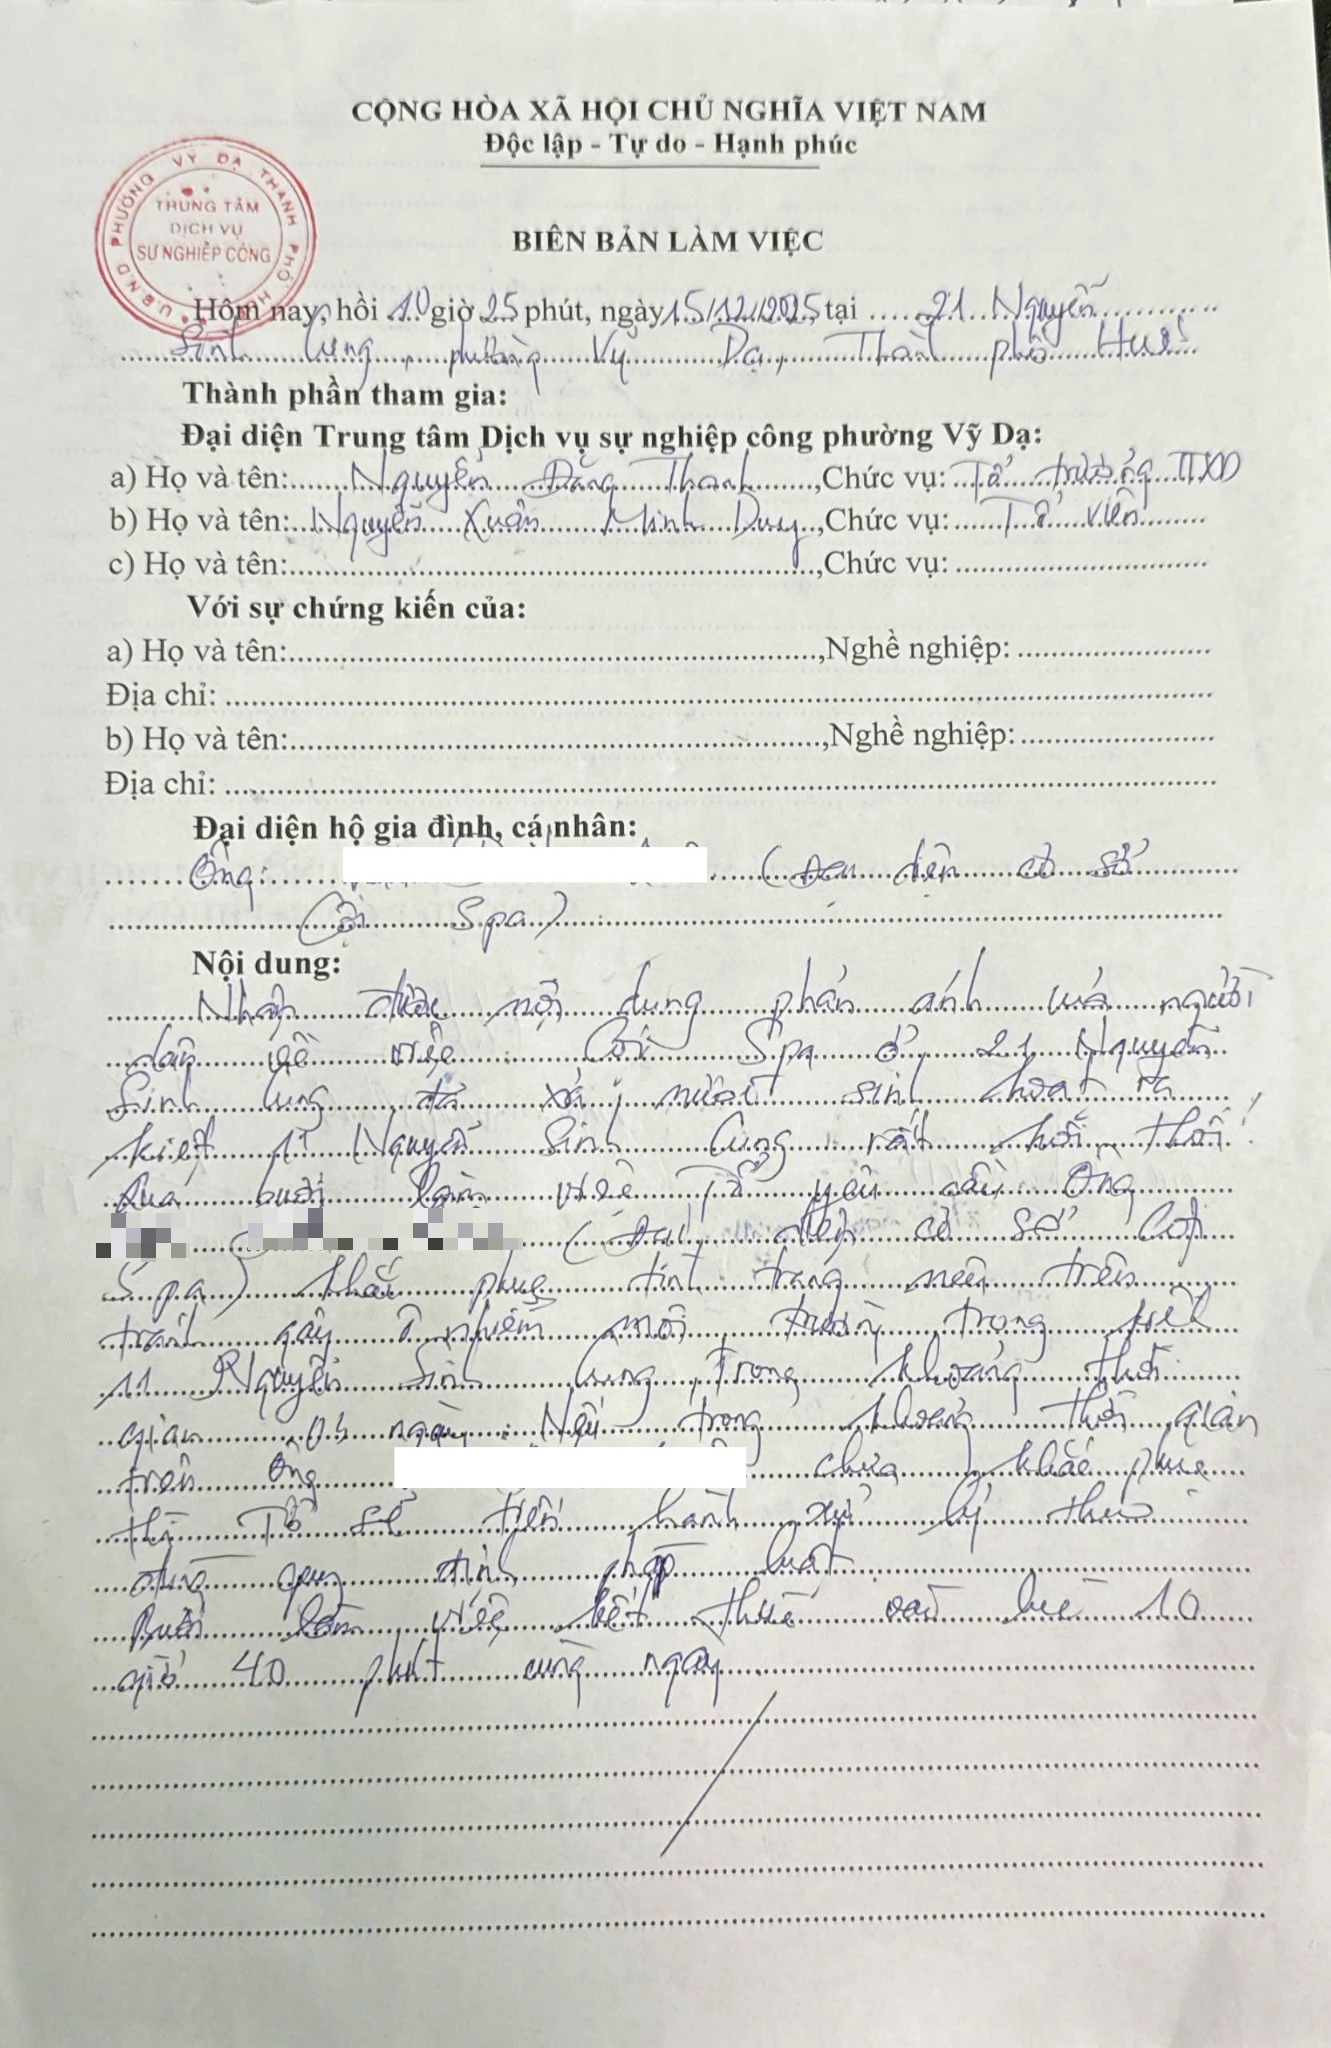 CỘNG HÒA XÃ HỘI CHỦ NGHĨA VIỆT NAM
Độc lập - Tự do - Hạnh phúc
U.B.N.D PHƯỜNG VỸ DẠ THÀNH PHỐ HUẾ
TRUNG TÂM
DỊCH VỤ
SỰ NGHIỆP CÔNG
BIÊN BẢN LÀM VIỆC
Hôm nay, hồi 10 giờ 25 phút, ngày 15/12/2025, tại 21 Nguyễn
Sinh Cung, phường Vỹ Dạ, Thành phố Huế
Thành phần tham gia:
Đại diện Trung tâm Dịch vụ sự nghiệp công phường Vỹ Dạ:
a) Họ và tên: Nguyễn Đăng Thanh, Chức vụ: Tổ trưởng TTXD
b) Họ và tên: Nguyễn Xuân Minh Duy, Chức vụ: Tổ viên
c) Họ và tên:, Chức vụ:
Với sự chứng kiến của:
a) Họ và tên:, Nghề nghiệp:
Địa chỉ:
b) Họ và tên:, Nghề nghiệp:
Địa chỉ:
Đại diện hộ gia đình, cá nhân:
Ông: (Đại diện cơ sở
Cội Spa)
Nội dung:
Nhận được nội dung phản ánh của người
dân về việc Cội Spa ở 21 Nguyễn
Sinh Cung đã xả nước sinh hoạt ra
kiệt 11 Nguyễn Sinh Cung rất hôi thối!
Qua buổi làm việc Tổ yêu cầu Ông
(Đại diện cơ sở Cội
Spa) khắc phục tình trạng nêu trên
tránh gây ô nhiễm môi trường trong kiệt
11 Nguyễn Sinh Cung, Trong khoảng thời
gian ngày. Nếu trong khoảng thời gian
trên Ông chưa khắc phục
thì Tổ sẽ tiến hành xử lý theo
đúng quy định pháp luật
Buổi làm việc kết thúc vào lúc 10
giờ 40 phút cùng ngày